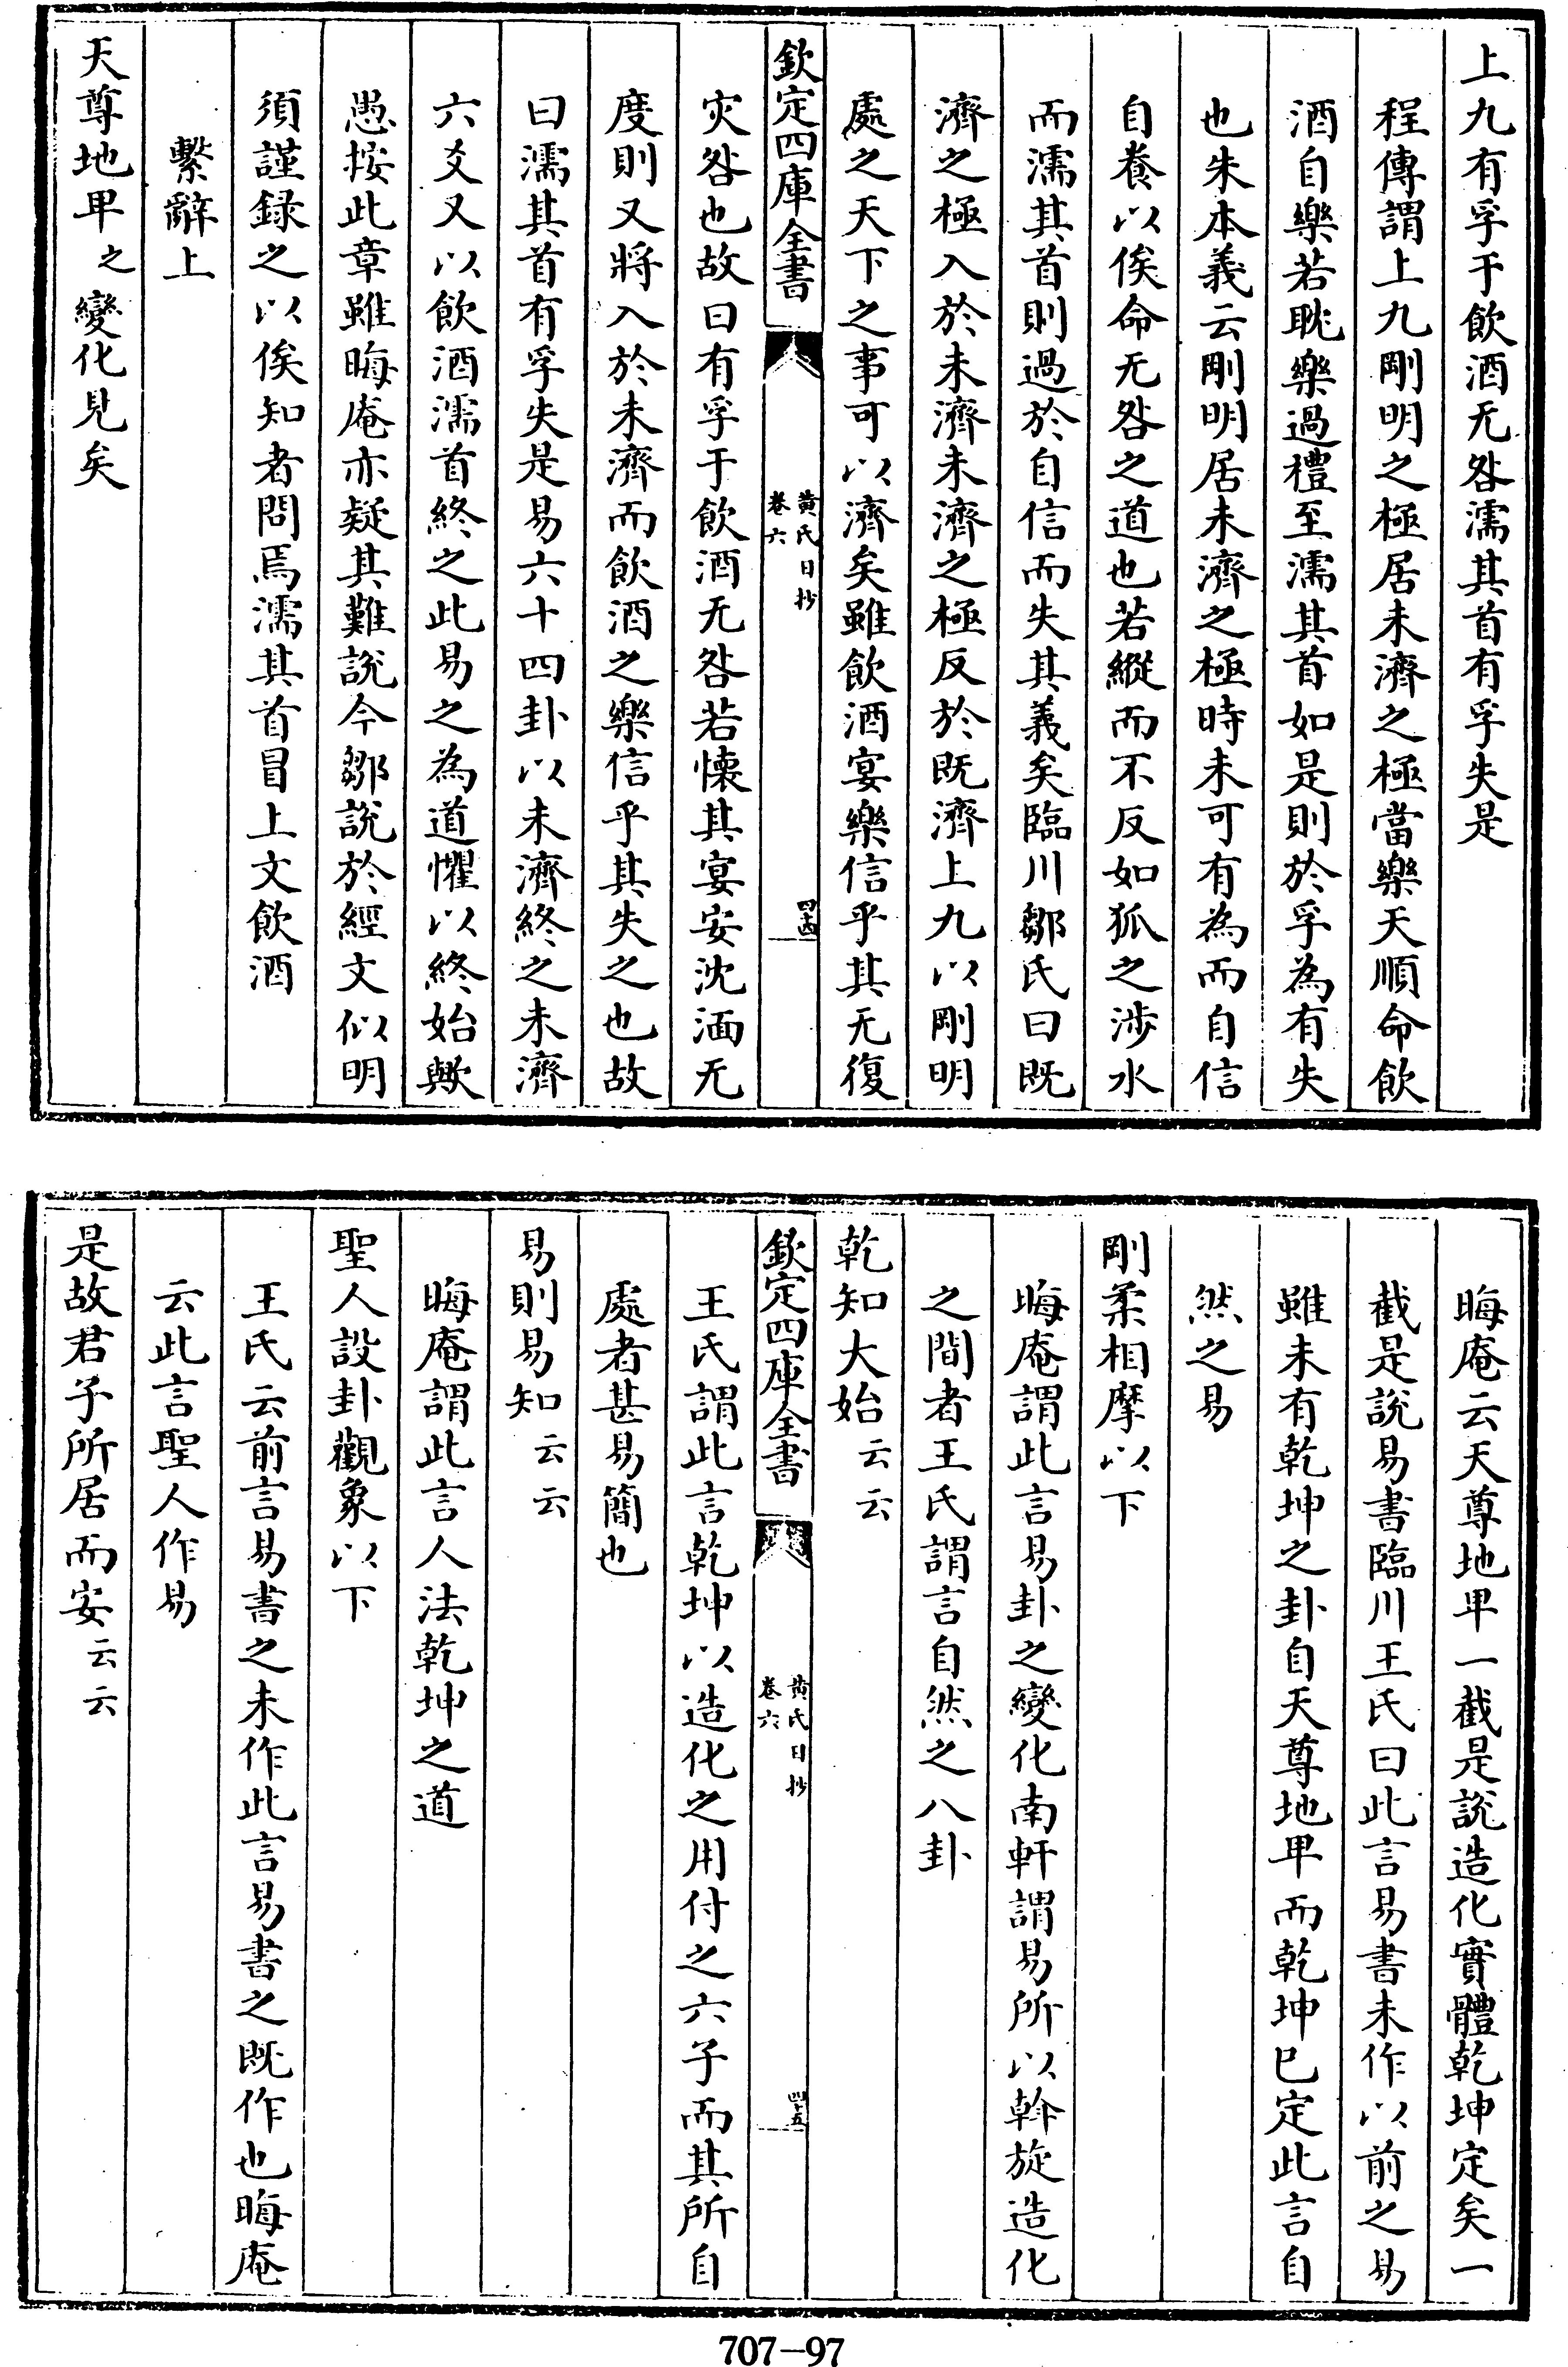 上九有孚于飲酒无咎濡其首有孚失是
程傳謂上九剛明之極居未濟之極當樂天順命飲
酒自樂若耽樂過禮至濡其首如是則於孚為有失
也朱本義云剛明居未濟之極時未可有為而自信
自養以俟命无咎之道也若縱而不反如狐之涉水
而濡其首則過於自信而失其義矣臨川鄒氏曰既
濟之極入於未濟未濟之極反於既濟上九以剛明
處之天下之事可以濟矣雖飲酒宴樂信乎其无復
欽定四庫全書
黄氏日抄
卷六
四十四
灾咎也故曰有孚于飲酒无咎若懐其宴安沈湎无
度則又將入於未濟而飲酒之樂信乎其失之也故
曰濡其首有孚失是易六十四卦以未濟終之未濟
六爻又以飲酒濡首終之此易之為道懼以終始歟
愚按此章雖晦庵亦疑其難說今鄒說於經文似明
須謹録之以俟知者問焉濡其首冒上文飲酒
繫辭上
天尊地卑之變化見矣
晦庵云天尊地卑一截是說造化實體乾坤定矣一
截是說易書臨川王氏曰此言易書未作以前之易
雖未有乾坤之卦自天尊地卑而乾坤已定此言自
然之易
剛柔相摩以下
晦庵謂此言易卦之變化南軒謂易所以斡旋造化
之間者王氏謂言自然之八卦
乾知大始云云
欽定四庫全書
黄氏日抄
卷六
四十五
王氏謂此言乾坤以造化之用付之六子而其所自
處者甚易簡也
易則易知云云
晦庵謂此言人法乾坤之道
聖人設卦觀象以下
王氏云前言易書之未作此言易書之既作也晦庵
云此言聖人作易
是故君子所居而安云云
707-97